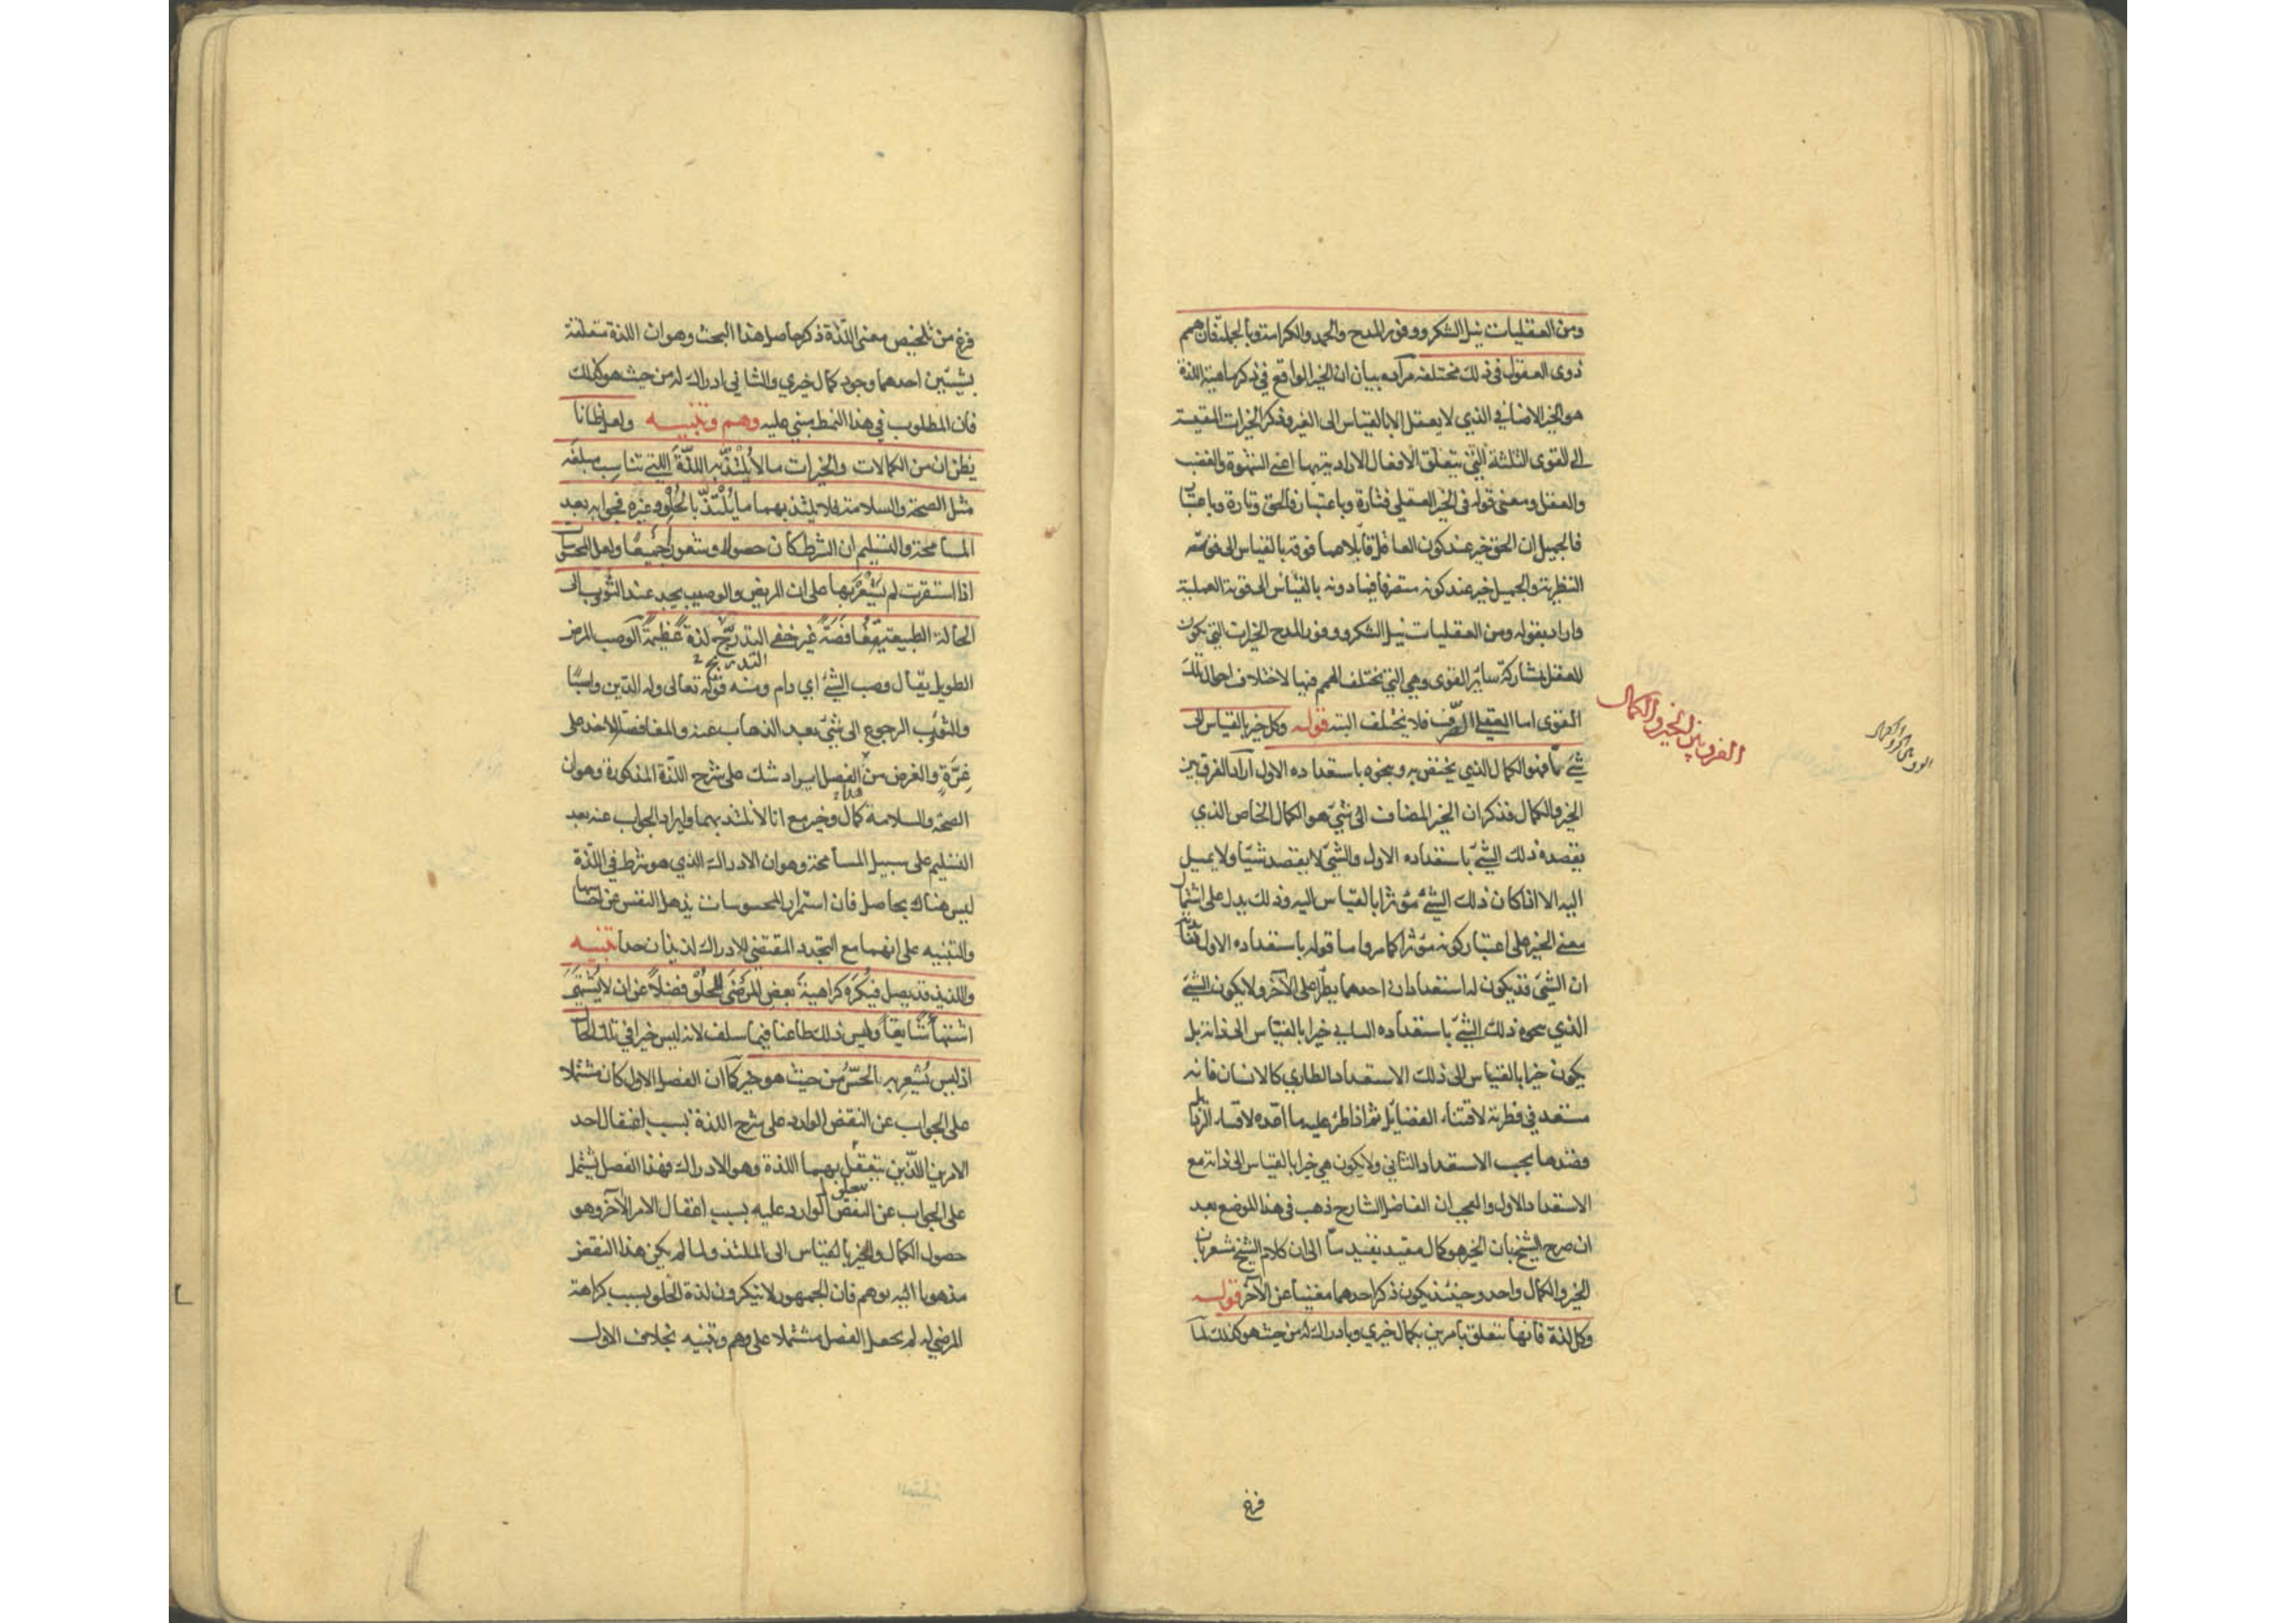 ومن العقليات نيل الشكر ووفور المدح والحمد والكرامة وبالجملة فان همم
ذوى العقول فى ذلك مختلفة مراده بيان ان الخير الواقع في ذكر ماهية اللذة
هو الخير الاضافي الذي لا يعقل الا بالقياس الى الغير وذكر الخيرات المقيسة
الى القوى الثلثة التي يتعلق الافعال الارادية بها اعنى الشهوة والغضب
والعقل ومعنى قوله فى الخير العقلي فتارة وباعتبار فالحق وتارة وباعتبار
فالجميل ان الحق خير عند كون العاقل قابلا عما فوقه بالقياس الى قوته
النظرية والجميل خير عند كونه متصرفا فيما دونه بالقياس الى قوته العملية
واراد بقوله ومن العقليات نيل الشكر ووفور المدح الخيرات التي يكون
للعقل بمشاركة سائر القوى وهي التي تختلف الهمم فيها لاختلاف احوال تلك
القوى اما العقلي الصرف فلا يختلف البتة قوله وكل خير بالقياس الى
شئ ما فهو الكمال الذي يختص به وينحوه باستعداده الاول اراد الفرق بين
الخير والكمال فذكر ان الخير المضاف الى شئ هو الكمال الخاص الذي
يقصده ذلك الشئ باستعداده الاول والشئ لا يقصد شيئا ولا يميل
اليه الا اذا كان ذلك الشئ مؤثرا بالقياس اليه وذلك يدل على اشتمال
معنى الخير على اعتبار كونه مؤثرا كما مر واما قوله باستعداده الاول
ان الشئ قد يكون له استعدادان احدهما يطرأ على الآخر ولا يكون الشئ
الذي ينحوه ذلك الشئ باستعداده الثاني خيرا بالقياس الى ذاته بل
يكون خيرا بالقياس الى ذلك الاستعداد الطاري كالانسان فانه
مستعد في فطرته لاقتناء الفضائل ثم اذا طرء عليه ما اعده لاقتناء الرذايل
قصدها بحسب الاستعداد الثاني ولا يكون هي خيرا بالقياس الى ذاته مع
الاستعداد الاول والعجب ان الفاضل الشارح ذهب فى هذا الموضع بعد
ان صرح الشيخ بان الخير هو كمال مقيد بقيد ما الى ان كلام الشيخ مشعر بان
الخير والكمال واحد وحينئذ يكون ذكر احدهما مغنيا عن الآخر قوله
وكل لذة فانها تتعلق بامرين بكمال خيري وبادراك له من حيث هو كذلك لما
الفرق بين الخير والكمال
فرغ
فرغ من تلخيص معنى اللذة ذكر حاصل هذا البحث وهو ان اللذة متعلقة
بشيئين احدهما وجود كمال خيري والثاني ادراك له من حيث هو كذلك
فان المطلوب في هذا النمط مبني عليه وهم وتنبيه ولعل ظانا
يظن ان من الكمالات والخيرات ما لا يلتذ به اللذة التي تناسب مبلغه
مثل الصحة والسلامة فلا يلتذ بهما ما يلتذ بالحلو وغيره فجوابه بعد
المسامحة والتسليم ان الشرط كان حصولا وشعورا جميعا ولعل المحسوسات
اذا استقرت لم يشعر بها على ان المريض والوصب يجد عند الثوب الى
الحالة الطبيعية مغافصة غير خفى التدريج لذة عظيمة الوصب المرض
التدريج
الطويل يقال وصب الشئ اي دام ومنه قوله تعالى وله الدين واصبا
والثوب الرجوع الى شئ بعد الذهاب عنه والمغافصة الاخذ على
غرة والغرض من الفصل ايراد شك على شرح اللذة المذكورة وهو ان
الصحة والسلامة كمال وخير مع انا لا نلتذ بهما وايراد الجواب عنه بعد
التسليم على سبيل المسامحة وهو ان الادراك الذي هو شرط في اللذة
ليس هناك بحاصل فان استمرار المحسوسات يذهل النفس عن احساسها
والتنبيه على انهما مع التجدد المقتضي للادراك لذيذان جدا تنبيه
واللذيذ قد يصل فيكره كراهية بعض المرضى للحلو فضلا عن ان لا يشتهى
اشتهاء شايقا وليس ذلك طاعنا فيما سلف لانه ليس خيرا في تلك الحال
اذ ليس يشعر به الحس من حيث هو خير كما ان الفصل الاول كان مشتملا
على الجواب عن النقض الوارد على شرح اللذة بسبب اغفال احد
الامرين اللذين يتعلق بهما اللذة وهو الادراك فهذا الفصل يشتمل
على الجواب عن النقض الوارد عليه بسبب اغفال الامر الآخر وهو
حصول الكمال والخير بالقياس الى الملتذ ولما لم يكن هذا النقض
مذهوبا اليه بوهم فان الجمهور لا ينكرون لذة الحلو بسبب كراهة
المرضى له لم يجعل الفصل مشتملا على وهم وتنبيه بخلاف الاول